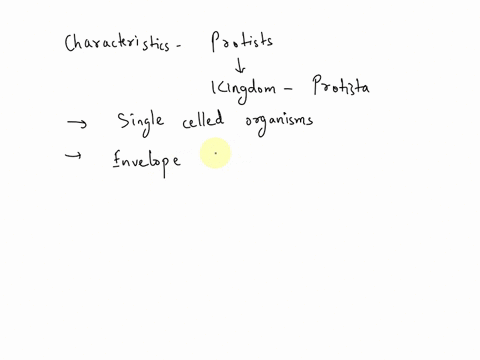 Characteristics - Protists
↓
Kingdom - Protista
→ Single celled organisms
→ Envelope